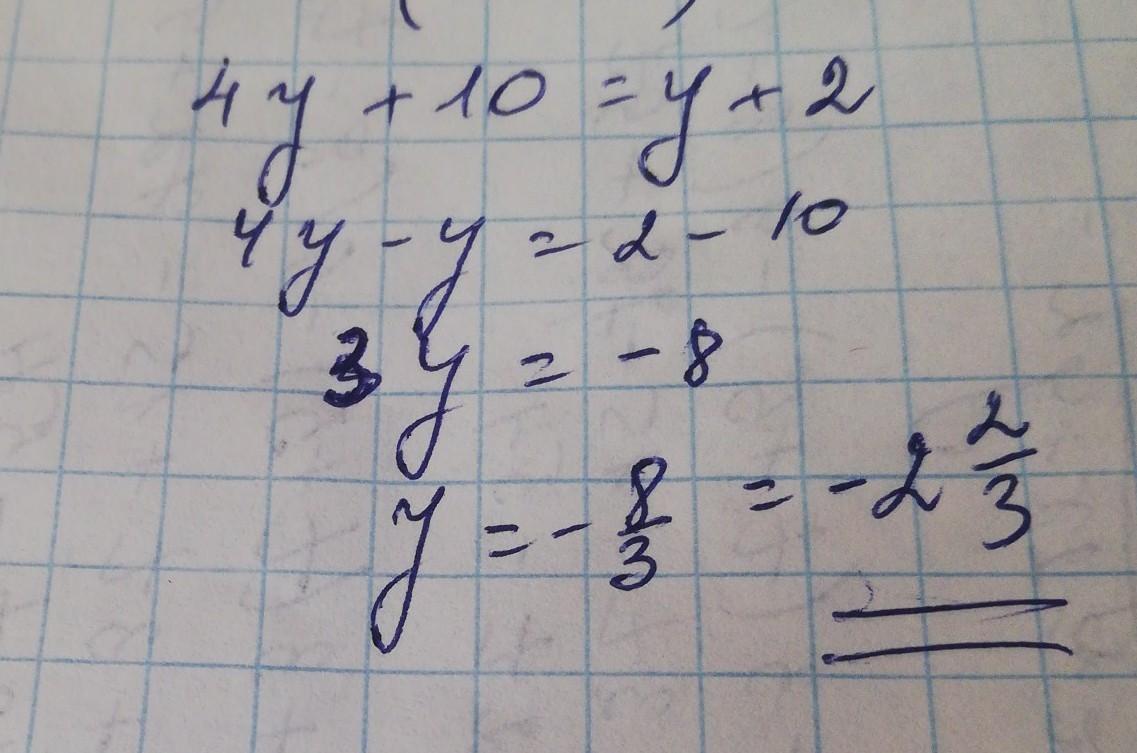 4y + 10 = y + 2
4y - y = 2 - 10
3y = -8
y = -8/3 = -2 2/3